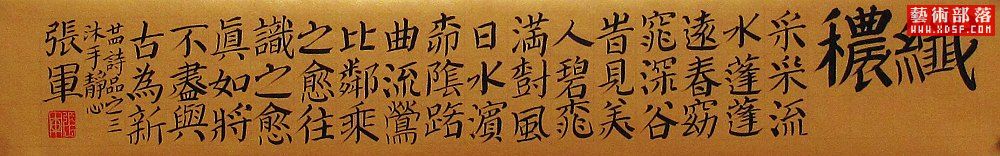 藝術部落
www.XDSF.com
纖
穠
采采流
水蓬蓬
遠春窈
窕深谷
旹見美
人碧桃
満樹風
日水濱
桺陰路
曲流鶯
比鄰乘
之愈往
識之愈
眞如將
不盡與
古為新
廿四詩品之三
沐手静心
張軍